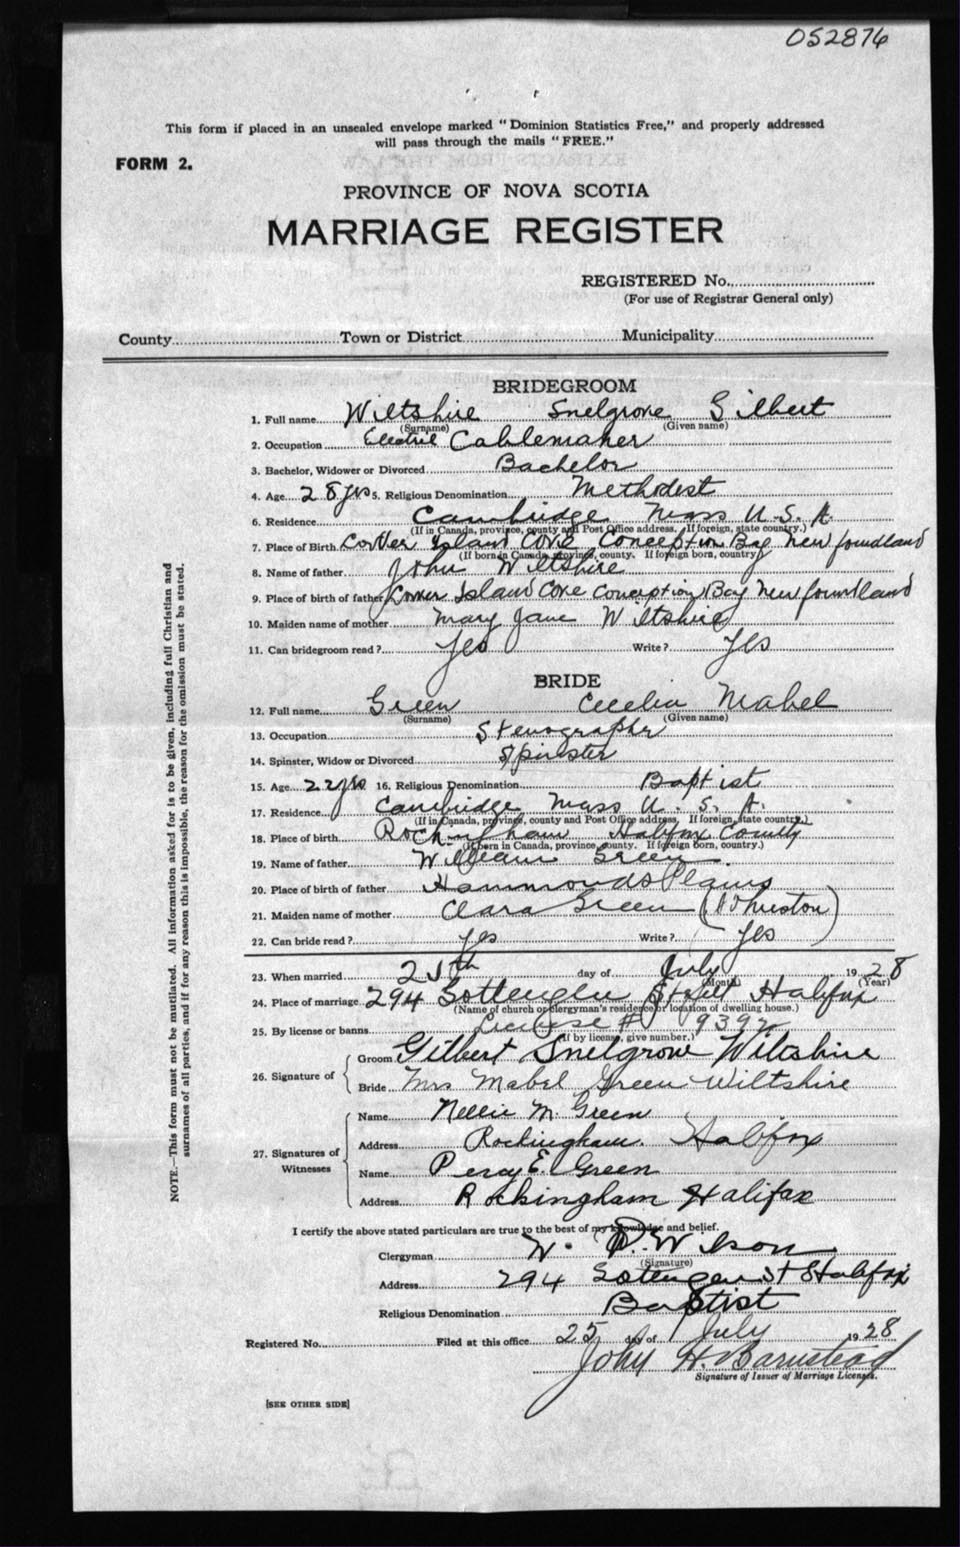 052876
This form if placed in an unsealed envelope marked "Dominion Statistics Free," and properly addressed
will pass through the mails "FREE."
FORM 2.
PROVINCE OF NOVA SCOTIA
MARRIAGE REGISTER
REGISTERED No.
(For use of Registrar General only)
County Town or District Municipality
BRIDEGROOM
1. Full name Wiltshire Snelgrove Gilbert
(Surname) (Given name)
2. Occupation Electric Cablemaker
3. Bachelor, Widower or Divorced Bachelor
4. Age 28 yrs 5. Religious Denomination Methodist
6. Residence Cambridge Mass U.S.A.
(If in Canada, province, county and Post Office address. If foreign, state country.)
7. Place of Birth Island Cove Conception Bay New foundland
(If born in Canada, province, county. If foreign born, country)
8. Name of father John Wiltshire
9. Place of birth of father Island Cove Conception Bay New foundland
10. Maiden name of mother Mary Jane Wiltshire
11. Can bridegroom read? Yes Write? Yes
BRIDE
12. Full name Green Cecelia Mabel
(Surname) (Given name)
13. Occupation Stenographer
14. Spinster, Widow or Divorced Spinster
15. Age 22 yrs 16. Religious Denomination Baptist
17. Residence Cambridge Mass U.S.A.
(If in Canada, province, county and Post Office address. If foreign, state country.)
18. Place of birth Rockingham Halifax County
(If born in Canada, province county. If foreign born, country.)
19. Name of father William Green
20. Place of birth of father Hammonds Plains
21. Maiden name of mother Clara Green (Johnston)
22. Can bride read? Yes Write? Yes
23. When married 25th day of July 1928
(Month) (Year)
24. Place of marriage 294 Gottengen Street Halifax
(Name of church or clergyman's residence or location of dwelling house.)
25. By license or banns License # 9392
(If by license, give number.)
26. Signature of
Groom Gilbert Snelgrove Wiltshire
Bride Mrs Mabel Green Wiltshire
27. Signatures of Witnesses
Name Nellie M. Green
Address Rockingham. Halifax
Name Percy E. Green
Address Rockingham Halifax
I certify the above stated particulars are true to the best of my knowledge and belief.
Clergyman W. P. Wilson
(Signature)
Address 294 St Halifax
Religious Denomination Baptist
Registered No. Filed at this office 25 day of July 1928
John H. Barnstead
Signature of Issuer of Marriage Licenses.
[SEE OTHER SIDE]
NOTE.—This form must not be mutilated. All information asked for is to be given, including full Christian and
surnames of all parties, and if for any reason this is impossible, the reason for the omission must be stated.